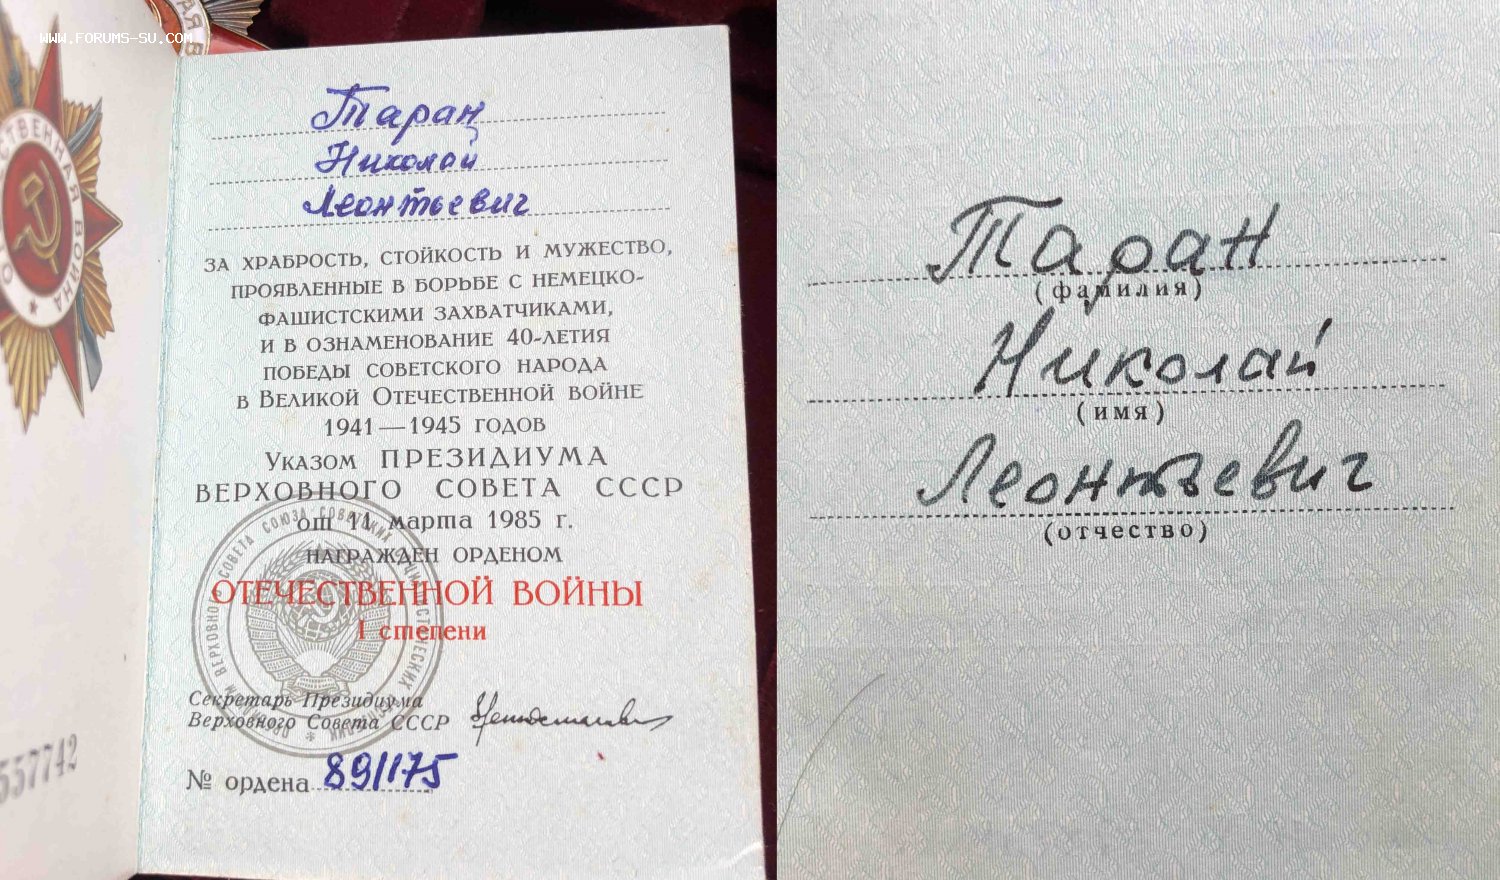 WWW.FORUMS-SU.COM
СТВЕННАЯ ВОЙНА
Таран
Николай
Леонтьевич
ЗА ХРАБРОСТЬ, СТОЙКОСТЬ И МУЖЕСТВО,
ПРОЯВЛЕННЫЕ В БОРЬБЕ С НЕМЕЦКО-
ФАШИСТСКИМИ ЗАХВАТЧИКАМИ,
И В ОЗНАМЕНОВАНИЕ 40-ЛЕТИЯ
ПОБЕДЫ СОВЕТСКОГО НАРОДА
В ВЕЛИКОЙ ОТЕЧЕСТВЕННОЙ ВОЙНЕ
1941—1945 ГОДОВ
УКАЗОМ ПРЕЗИДИУМА
ВЕРХОВНОГО СОВЕТА СССР
от 11 марта 1985 г.
НАГРАЖДЕН ОРДЕНОМ
ОТЕЧЕСТВЕННОЙ ВОЙНЫ
I степени
Секретарь Президиума
Верховного Совета СССР
№ ордена 891175
557742
Таран
(фамилия)
Николай
(имя)
Леонтьевич
(отчество)